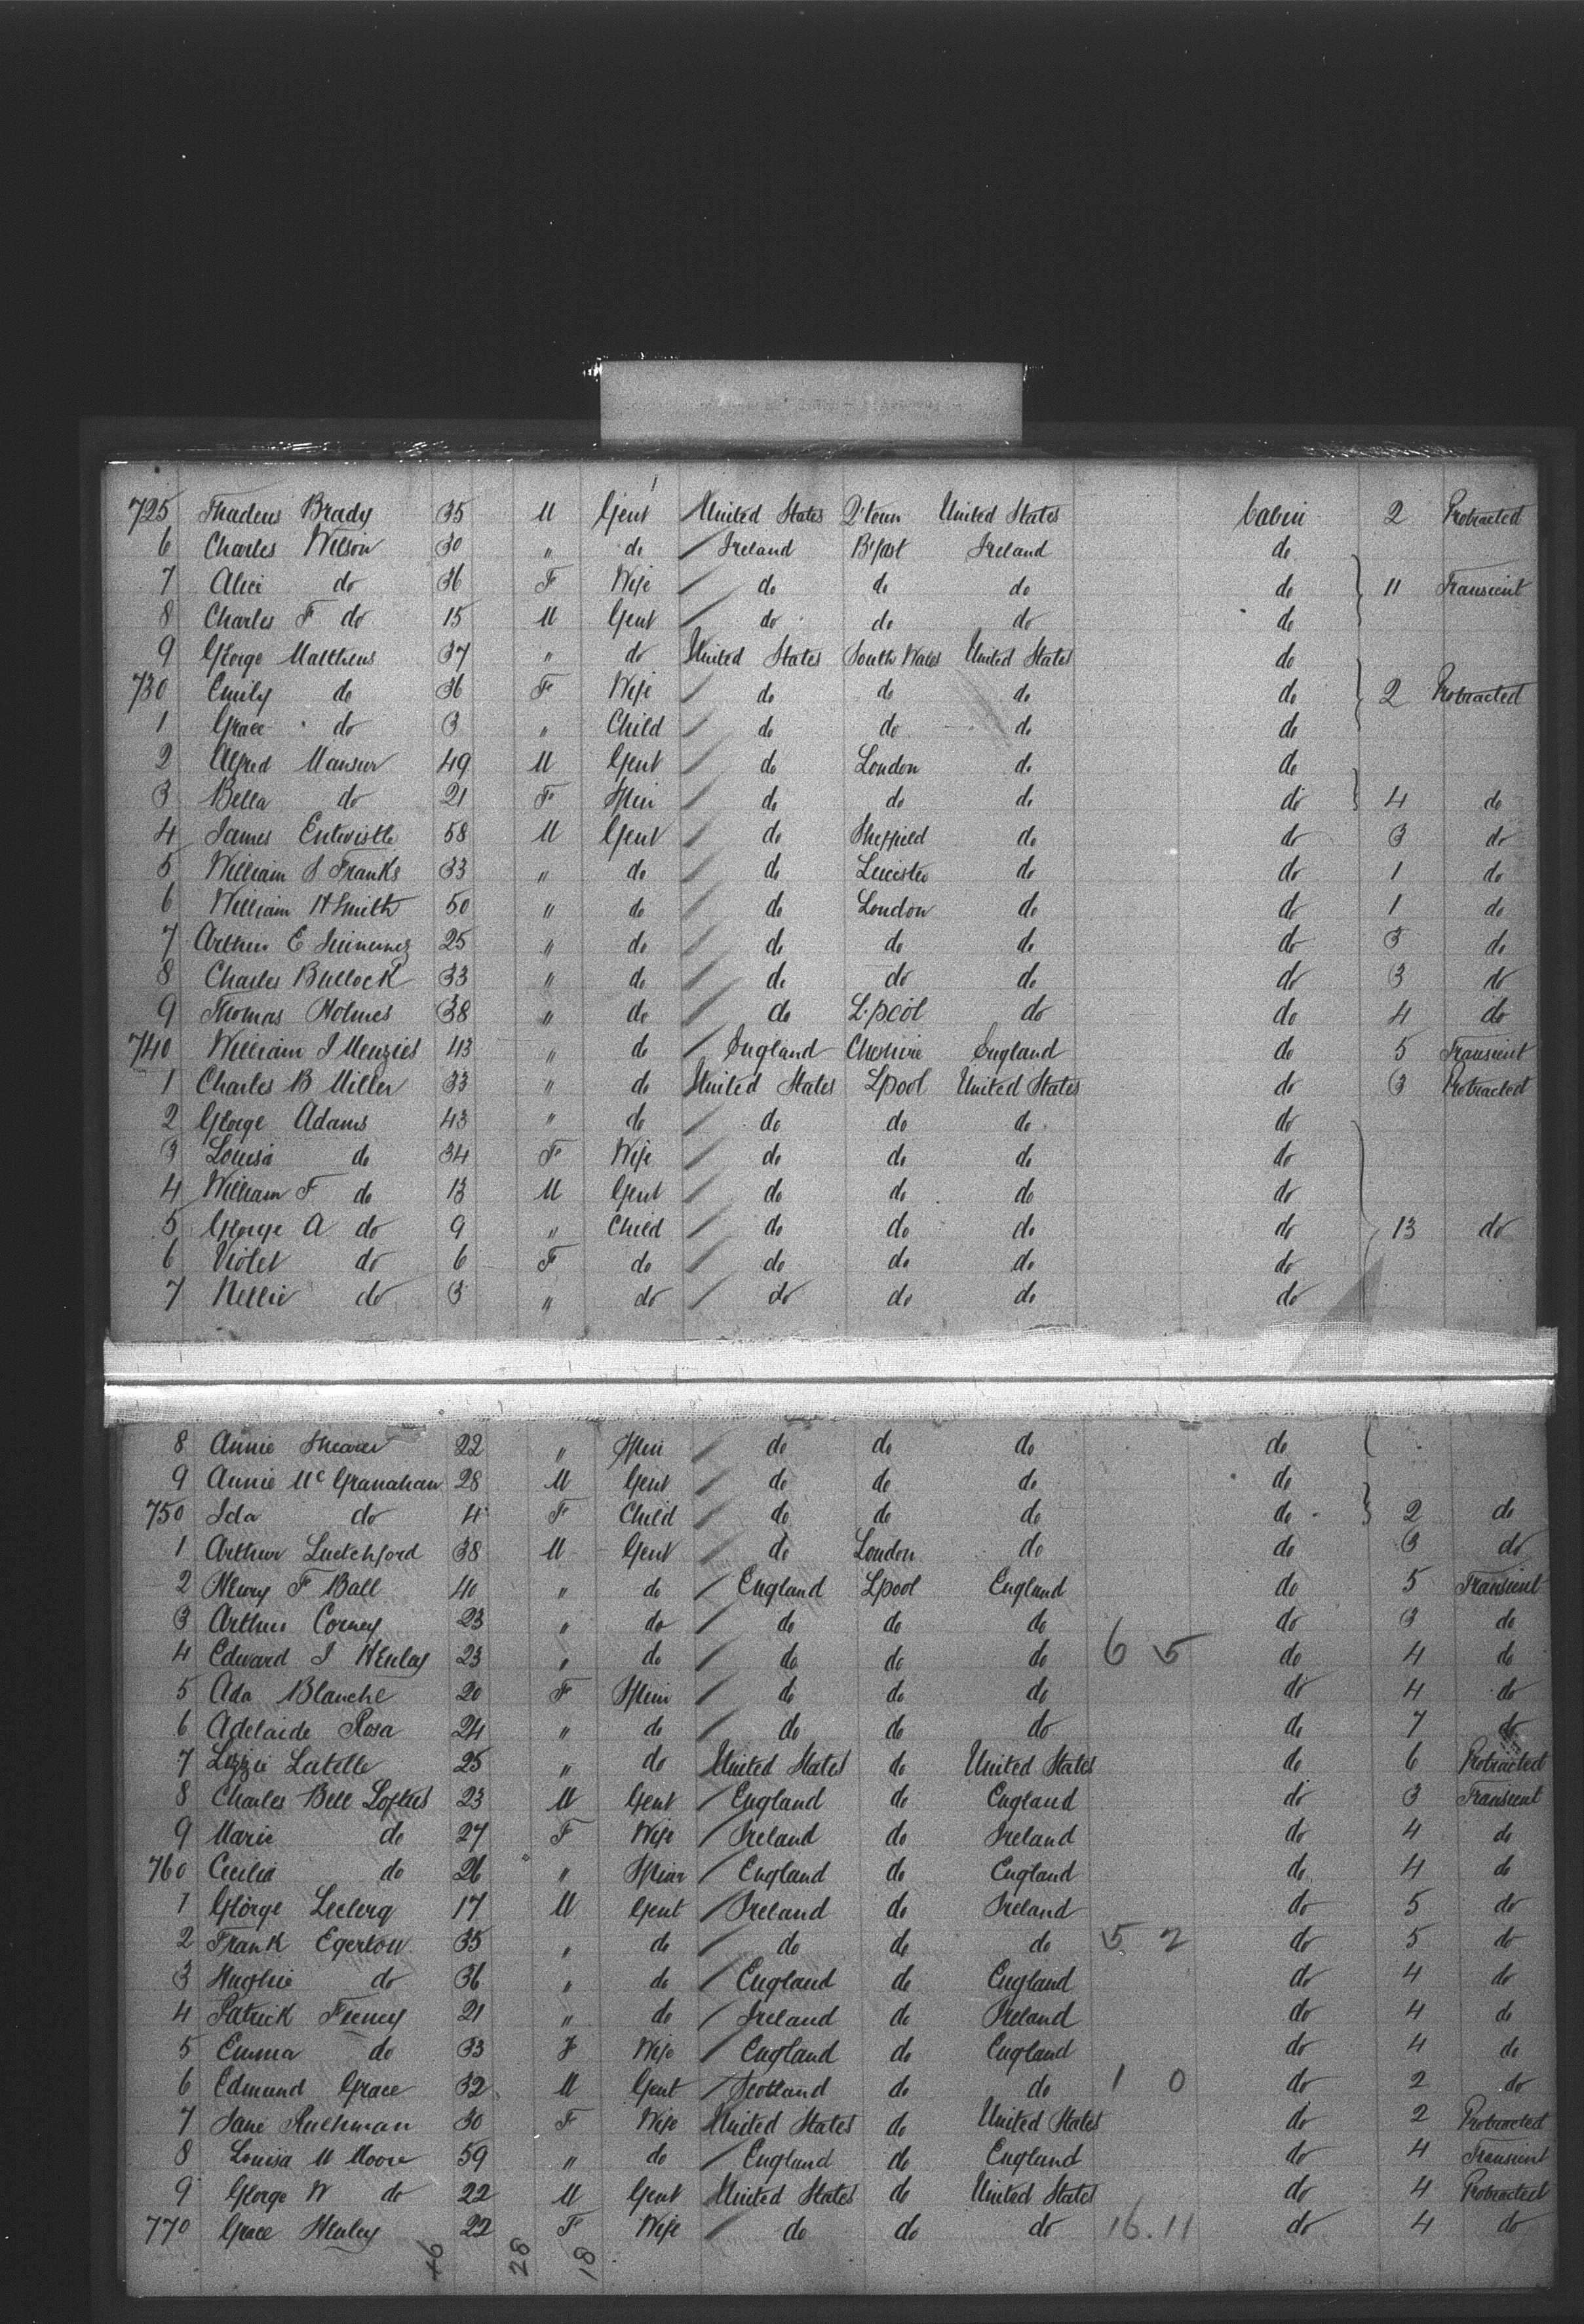 725 Thadeus Brady 35 M Gent United States Q'town United States Cabin 2 Protracted
6 Charles Wilson 30 " do Ireland B'fast Ireland do
7 Alice do 36 F Wife do do do do 11 Transient
8 Charles F do 15 M Gent do do do do
9 George Matthews 37 " do United States South Wales United States do
730 Emily do 36 F Wife do do do do 2 Protracted
1 Grace do 3 " Child do do do do
2 Alfred Manser 49 M Gent do London do do
3 Bella do 21 F Spin do do do do 4 do
4 James Entwistle 58 M Gent do Sheffield do do 3 do
5 William S Franks 33 " do do Leicester do do 1 do
6 William H Smith 50 " do do London do do 1 do
7 Arthur E 25 " do do do do do 3 do
8 Charles Bullock 33 " do do do do do 3 do
9 Thomas Holmes 38 " do do L'pool do do 4 do
740 William J Menzies 43 " do England Cheshire England do 5 Transient
1 Charles B Miller 33 " do United States Lpool United States do 3 Protracted
2 George Adams 43 " do do do do do
3 Louisa do 34 F Wife do do do do
4 William F do 13 M Gent do do do do
5 George A do 9 " Child do do do do 13 do
6 Violet do 6 F do do do do do
7 Nellie do 3 " do do do do do
8 Annie Shearer 22 " Spin do do do do
9 Annie McGranahan 28 M Gent do do do do
750 Ida do 4 F Child do do do do 2 do
1 Arthur Lutchford 38 M Gent do London do do 3 do
2 Henry F Ball 40 " do England Lpool England do 5 Transient
3 Arthur Corney 23 " do do do do do 3 do
4 Edward J Henley 23 " do do do do 6 5 do 4 do
5 Ada Blanche 20 F Spin do do do do 4 do
6 Adelaide Rosa 24 " do do do do do 7 do
7 Lizzie Latelle 25 " do United States do United States do 6 Protracted
8 Charles Bell Loftus 23 M Gent England do England do 3 Transient
9 Marie do 27 F Wife Ireland do Ireland do 4 do
760 Cecilia do 26 " Spin England do England do 4 do
1 George Leclerq 17 M Gent Ireland do Ireland do 5 do
2 Frank Egerton 35 " do do do do 5 2 do 5 do
3 Hughie do 36 " do England do England do 4 do
4 Patrick Feeney 21 " do Ireland do Ireland do 4 do
5 Emma do 33 F Wife England do England do 4 do
6 Edmund Grace 32 M Gent Scotland do do 1 0 do 2 do
7 Jane Ruthman 30 F Wife United States do United States do 2 Protracted
8 Louisa M Moore 59 " do England do England do 4 Transient
9 George W do 22 M Gent United States do United States do 4 Protracted
770 Grace Henley 22 F Wife do do do 16.11 do 4 do
46 28 18